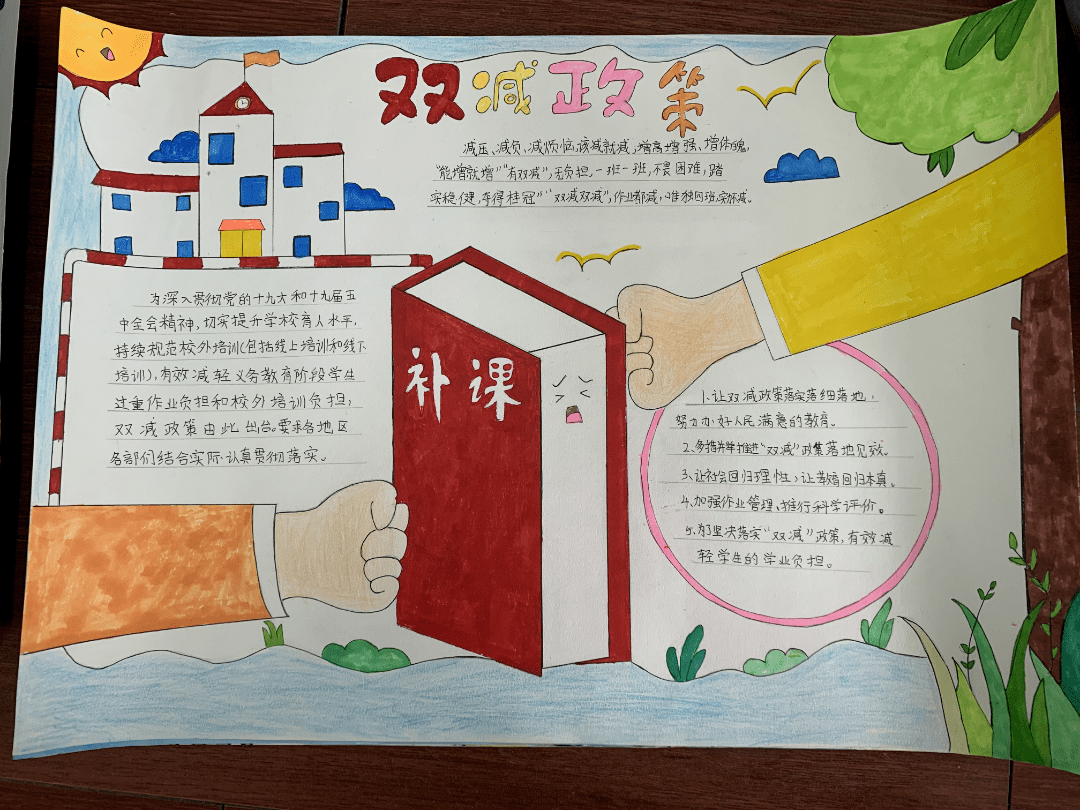 双减政策
减压、减负、减烦恼,该减就减,增高增强、增体魄,
"能增就增""有双减",无负担,一班一班,不畏困难,踏
实稳健,夺得桂冠""双减双减",作业都减,唯独四班,实际减。
为深入贯彻党的十九大和十九届五
中全会精神,切实提升学校育人水平,
持续规范校外培训(包括线上培训和线下
培训),有效减轻义务教育阶段学生
过重作业负担和校外培训负担,
双减政策由此出台。要求各地区
各部们结合实际认真贯彻落实。
补课
1、让双减政策落实落细落地,
努力办好人民满意的教育。
2、多措并举推进"双减"政策落地见效。
3、让社会回归理性,让教育回归本真。
4、加强作业管理、推行科学评价。
5、为了坚决落实"双减"政策,有效减
轻学生的学业负担。